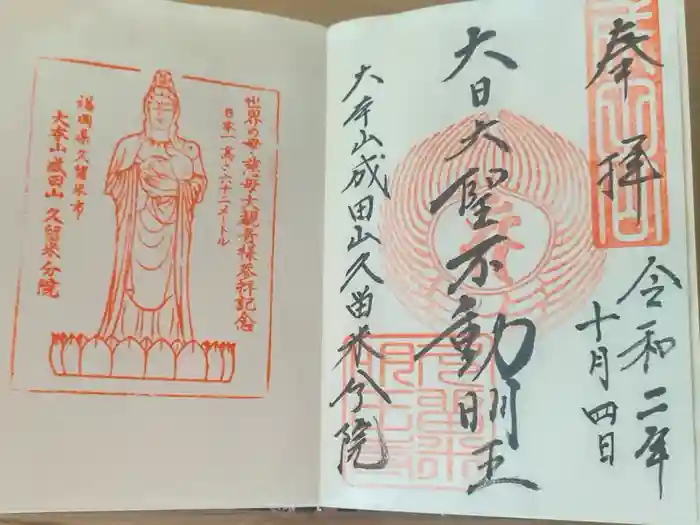 奉拝
令和二年
十月四日
大日大聖不動明王
大本山成田山久留米分院
世界の母 慈母大観音様参拝記念
日本一高さ六十二メートル
福岡県久留米市
大本山成田山久留米分院